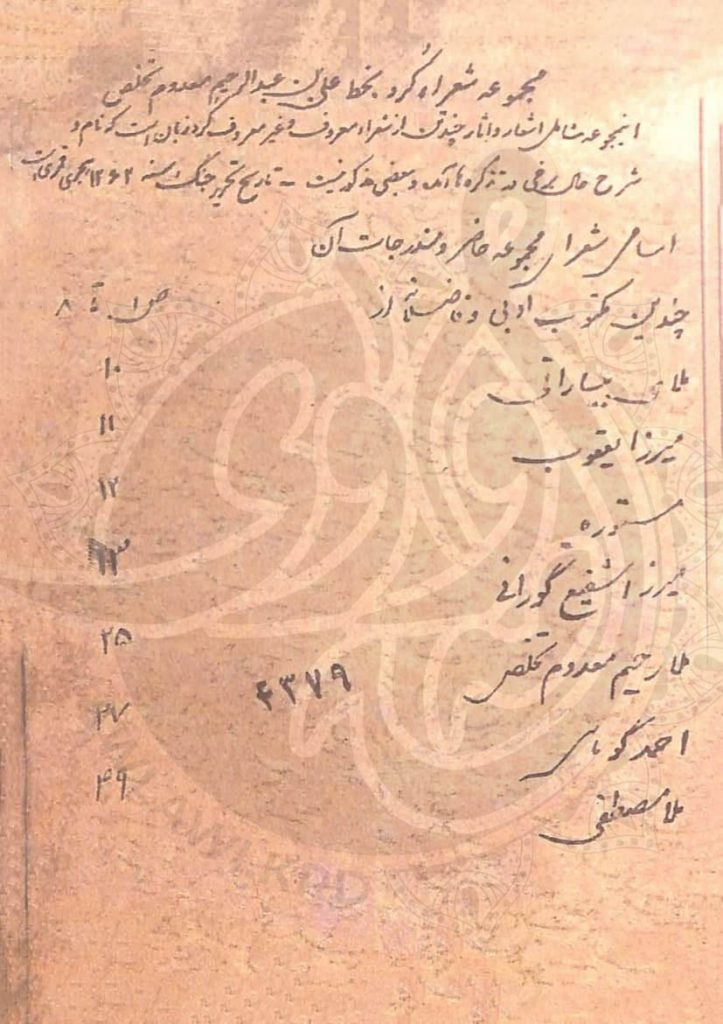 مجموعه شعراء کُرد بخط علی بن عبدالرحیم معدوم تخلص
اینمجموعه شامل اشعار و آثار چندتن از شعراء معروف و غیر معروف کرد زبان است که نام و
شرح حال برخی در تذکره‌ها آمده و بعضی مذکور نیست - تاریخ تحریر جنگ سنه ۱۲۶۲ هجری قمری است
اسامی شعرای مجموعه حاضر و مندرجات آن
چندین مکتوب ادبی و فاضلانه از ص ۱ تا ۸
ملای بیسارانی ۱۰
میرزا یعقوب ۱۱
مستوره ۱۲
میرزا شفیع گورانی ۱۳
ملا رحیم معدوم تخلص ۲۵
۴۳۷۹
احمد کوماسی ۴۷
ملا مصطفی ۴۹